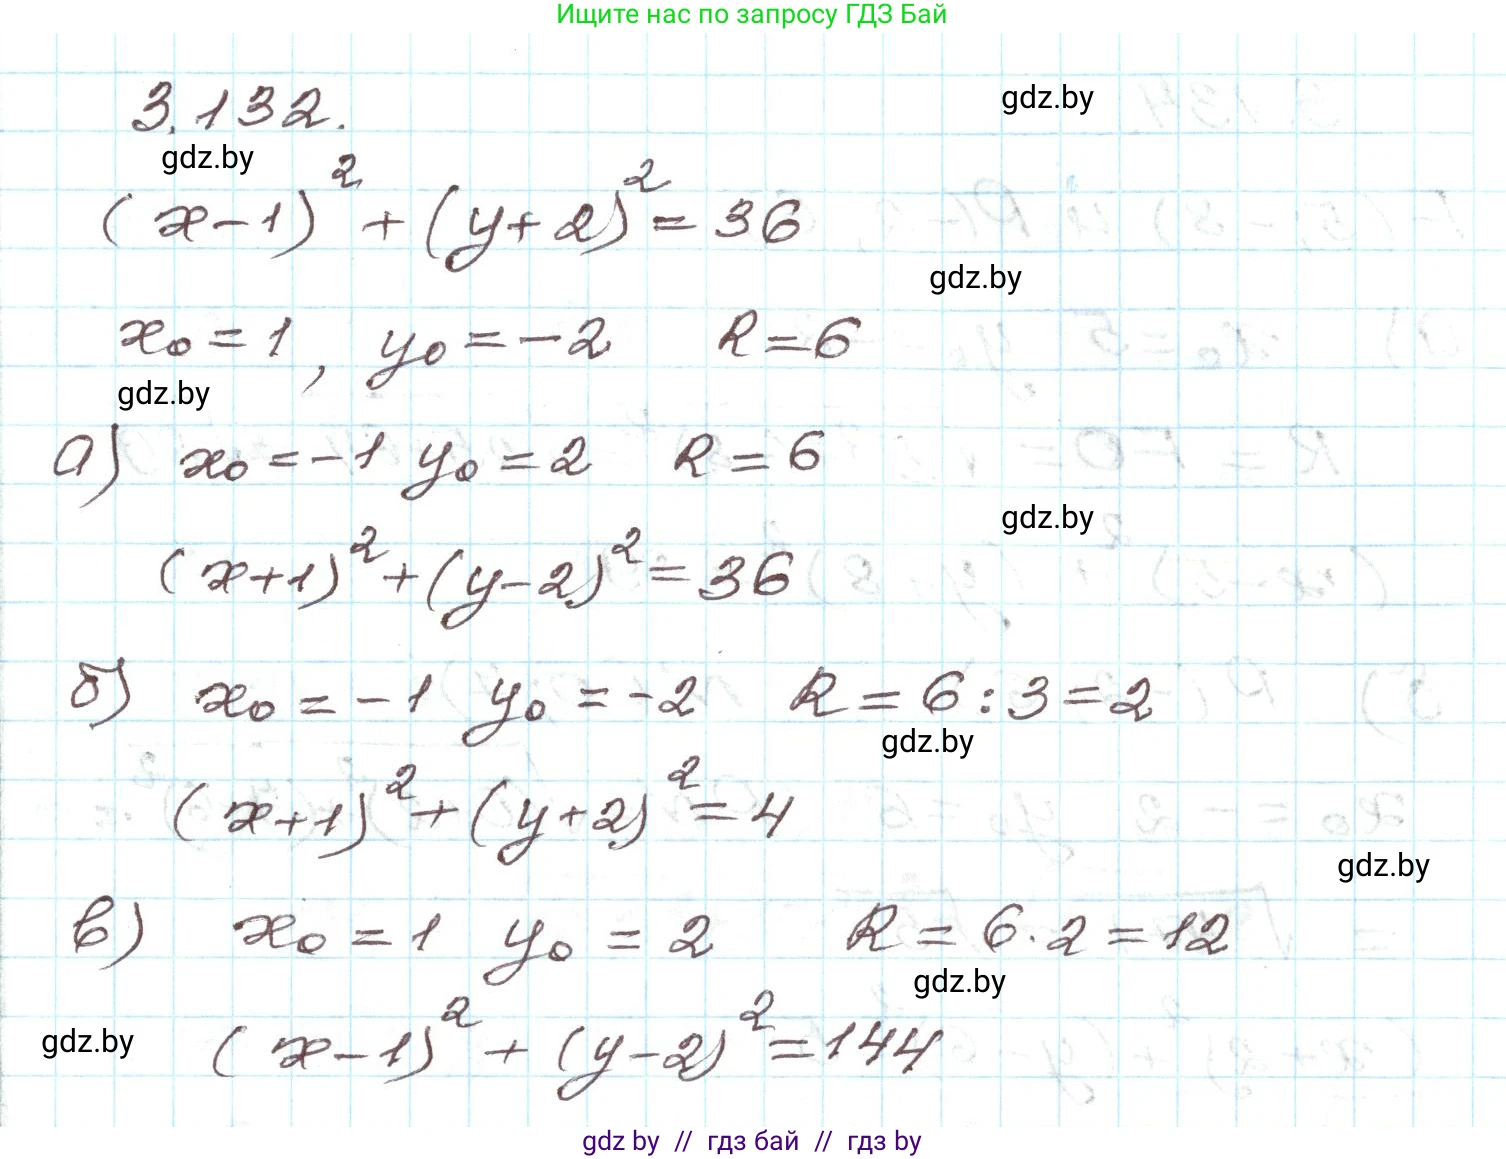 Ищите нас по запросу ГДЗ Бай
3.132.
gdz.by
gdz.by
(x-1)² + (y+2)² = 36
gdz.by
x₀ = 1, y₀ = -2 R = 6
gdz.by
а) x₀ = -1 y₀ = 2 R = 6
gdz.by
(x+1)² + (y-2)² = 36
б) x₀ = -1 y₀ = -2 R = 6 : 3 = 2
gdz.by
(x+1)² + (y+2)² = 4
gdz.by
в) x₀ = 1 y₀ = 2 R = 6 · 2 = 12
gdz.by
gdz.by
(x-1)² + (y-2)² = 144
gdz by // гдз бай // гдз by